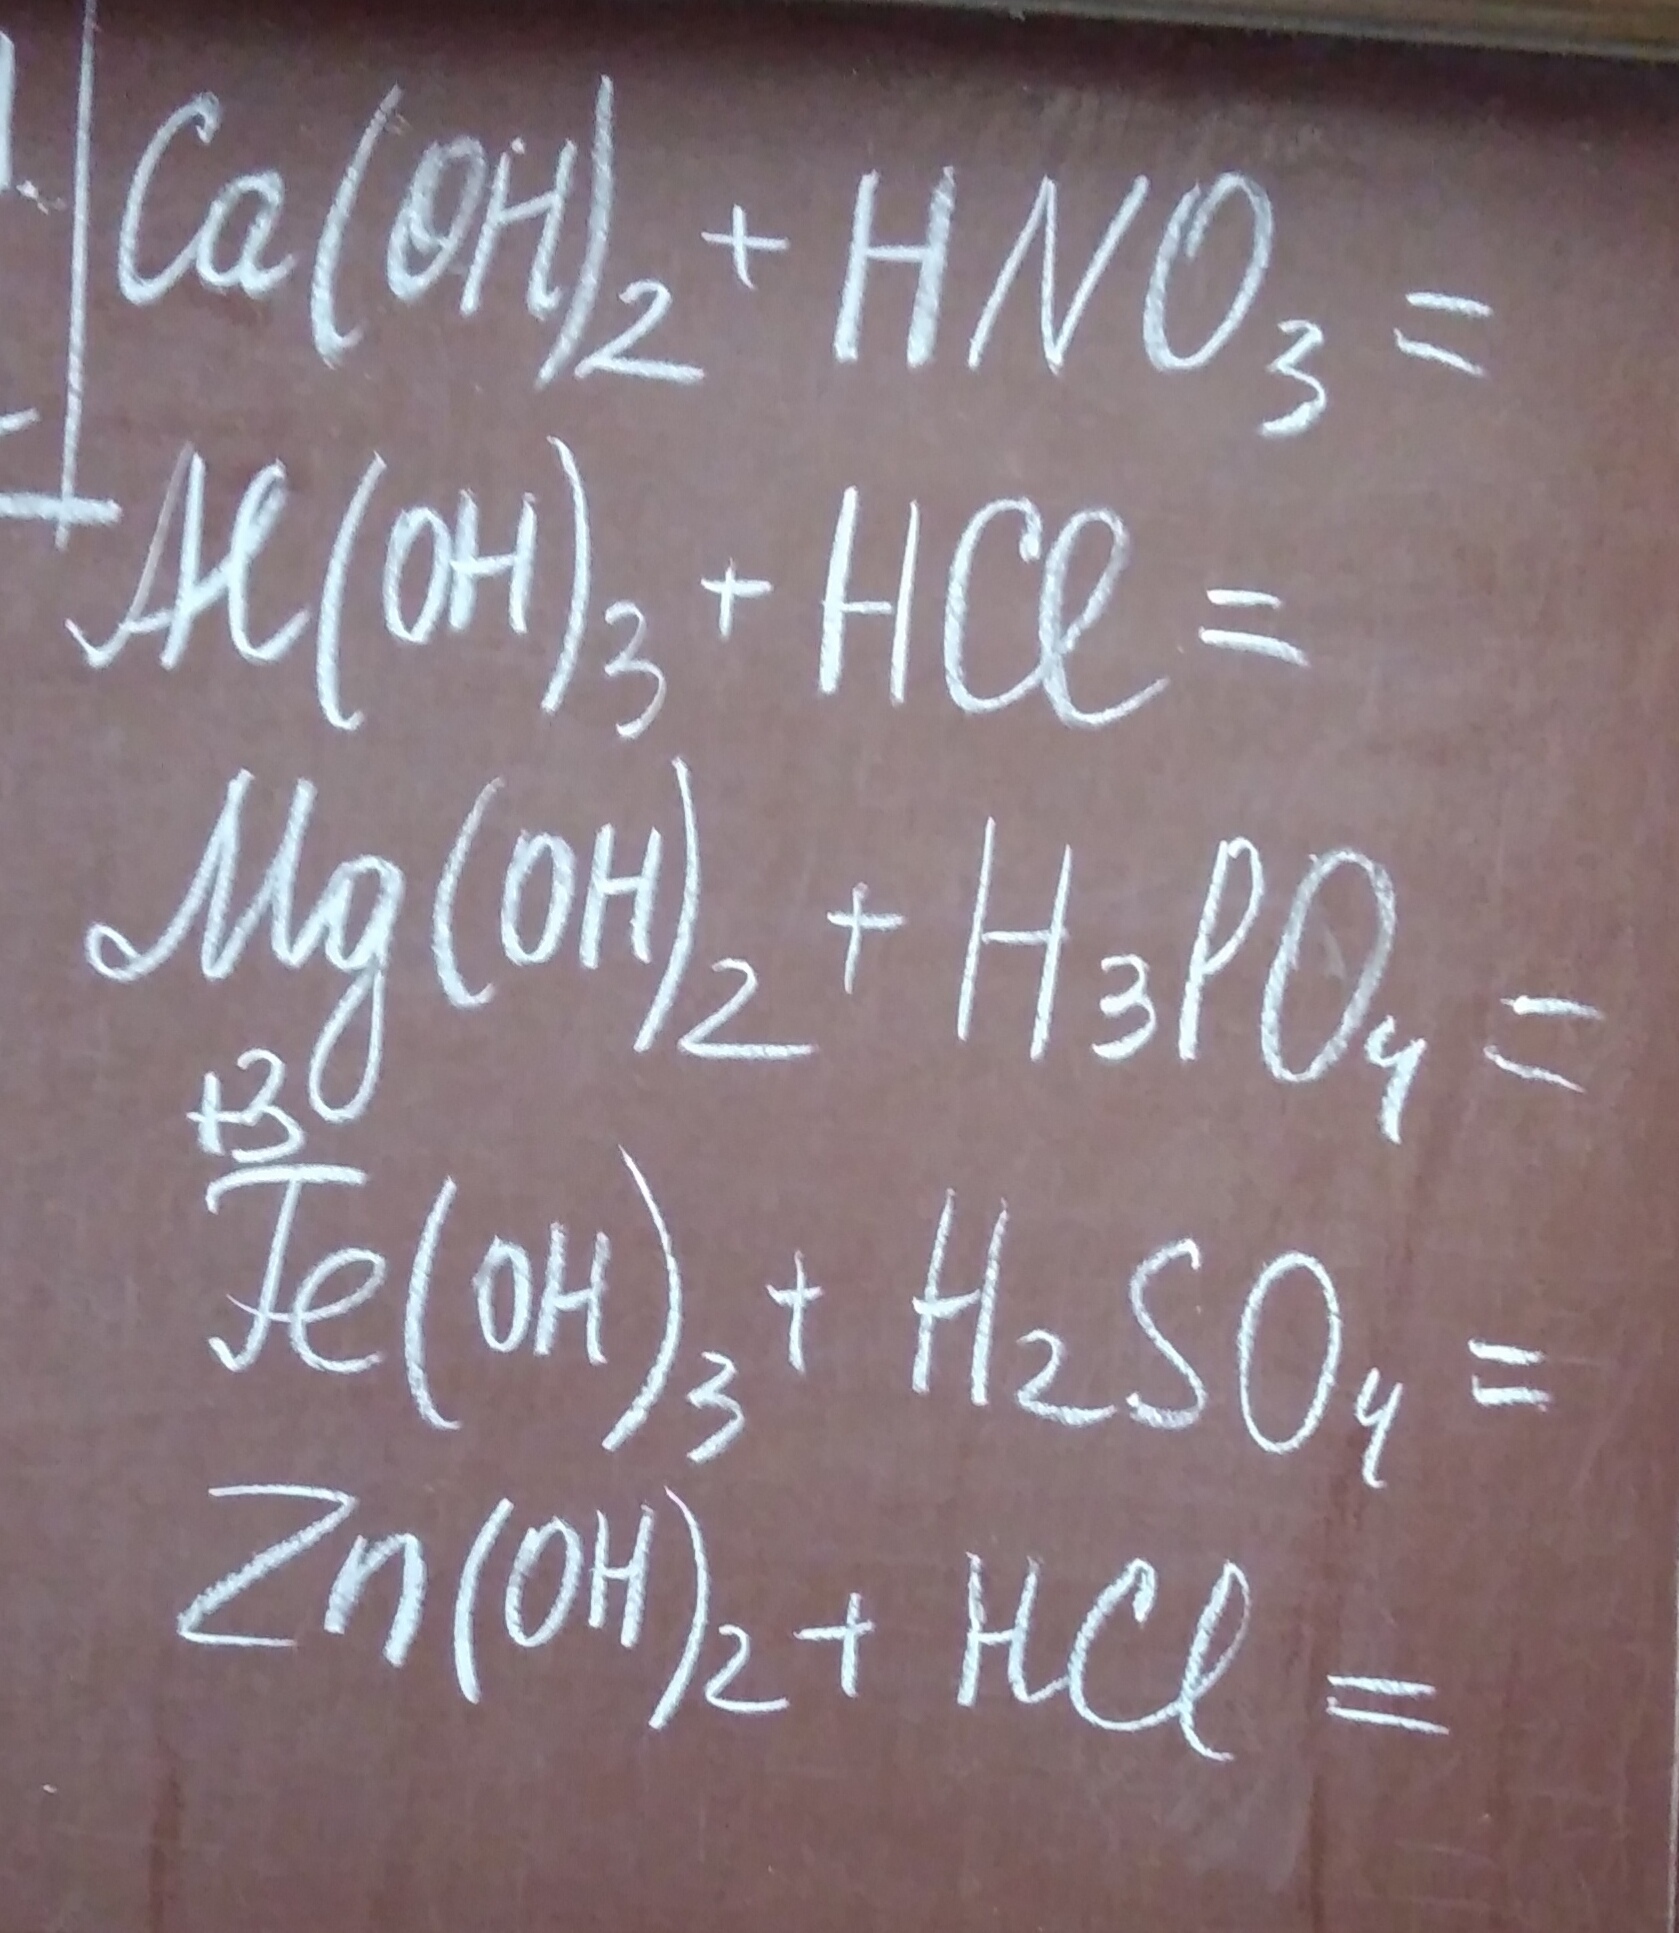 Ca(OH)₂ + HNO₃ =
Al(OH)₃ + HCl =
Mg(OH)₂ + H₃PO₄ =
+3
Fe(OH)₃ + H₂SO₄ =
Zn(OH)₂ + HCl =